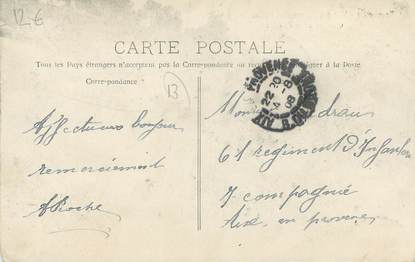 12€
CARTE POSTALE
Tous les Pays étrangers n'acceptent pas la Correspondance au
à la Poste
Correspondance
13
Affectueux bonjour
remerciement
ARoche
61 Régiment d'Infanterie
7 compagnie
Aix en provence